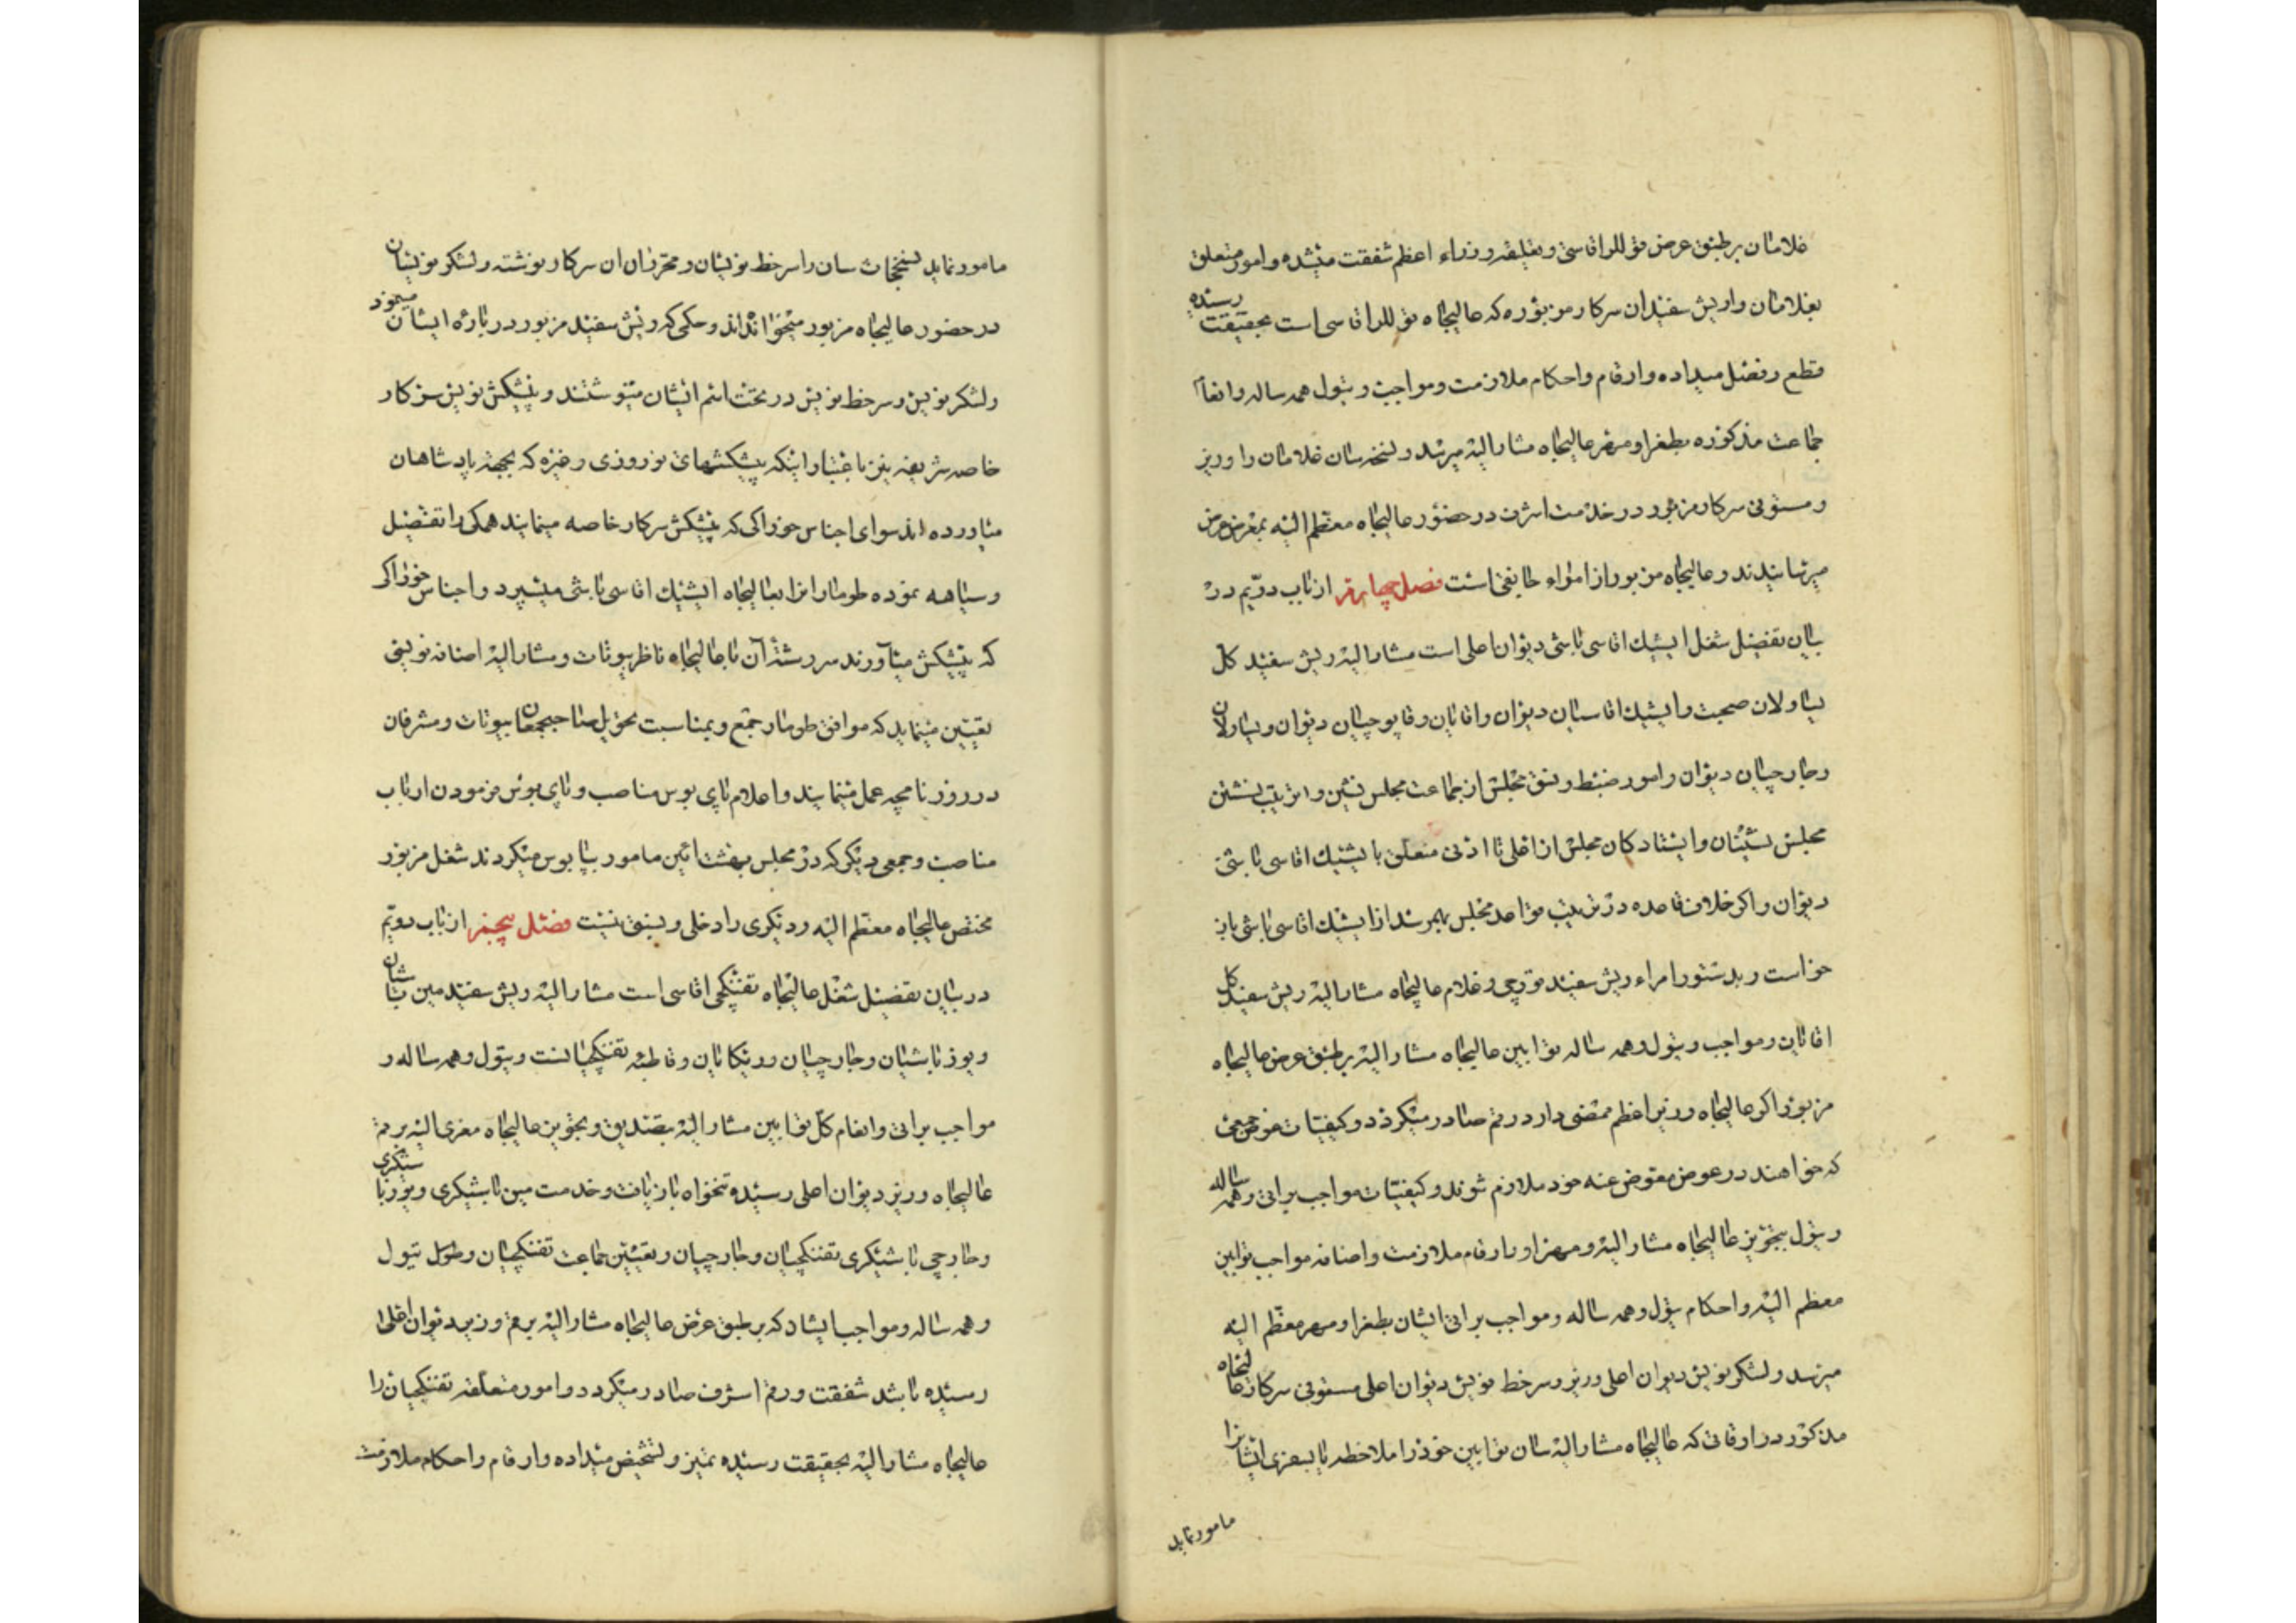 غلامان بر طبق عرض قوللر اقاسی و بعلیقه وزراء اعظم شفقت میشده و امور متعلق
بغلامان و اریش سفیدان سرکار مزبوره که عالیجاه قوللر اقاسی است بحقیقت رسیده
قطع و فصل میداده و ارقام و احکام ملازمت و مواجب و تیول همه ساله و انعام
جماعت مذکوره بطغرا و مهر عالیجاه مشار الیه میرسد و نسخه سان غلامان را وزیر
و مستوفی سرکار مزبور در خدمت اشرف در حضور عالیجاه معظم الیه بمعرض عرض
میرسانیدند و عالیجاه مزبور از امراء جانقی است فصل چهارم از باب دویم در
بیان تفصیل شغل ایشیك اقاسی باشی دیوان اعلی است مشار الیه ریش سفید کل
یساولان صحبت و ایشیك اقاسیان دیوان و اقایان و قاپوچیان دیوان و یساولان
و جارچیان دیوان و امور ضبط و نسق مجلس از جماعت مجلس نشین و ترتیب نشستن
مجلس نشینان و ایستادکان مجلس از اعلی تا ادنی متعلق با یشیك اقاسی باشی
دیوان و اکر خلاف قاعده در ترتیب قواعد مجلس بهمرسد از ایشیك اقاسی باشی باز
خواست و بدستور امراء ریش سفید قورچی و غلام عالیجاه مشار الیه ریش سفید کل
اقایان و مواجب و تیول و همه ساله توابین عالیجاه مشار الیه بر طبق عرض عالیجاه
مزبور و اکر عالیجاه وزیر اعظم ممضی دارد رقم صادر میکردد و کیفیات عوض جمعی
که خواهند در عوض مفوض عنه خود ملازم شوند و کیفیات مواجب براتی و همه ساله
و تیول بتجویز عالیجاه مشار الیه و مهر او و ارقام ملازمت و اضافه مواجب توابین
معظم الیه و احکام تیول و همه ساله و مواجب براتی ایشان بطغرا و مهر معظم الیه
میرسد و لشکر نویس دیوان اعلی وزیر و سر خط نویس دیوان اعلی مستوفی سرکار عالیجاه
مذکور در اوقاتی که عالیجاه مشار الیه سان توابین خود را ملاحظه یا بسفری ایشانرا
مامور نماید
مامور نماید نسخجات سان را سر خط نویسان و محرران ان سرکار نوشته و لشکر نویسان
در حضور عالیجاه مزبور میخوانداند و حکمی که ریش سفید مزبور در باره ایشان میفرمود
و لشکر نویس و سر خط نویس در تحت اسم ایشان مینوشتند و پیشکش نویس سرکار
خاصه شریفه نیز باعتبار اینکه پیشکشهای نوروزی و غیره که بجهة پادشاهان
میاورده اند سوای اجناس خوراکی که پیشکش سرکار خاصه مینمایند همکی را تفصیل
و سیاهه نموده طومار انرا بعالیجاه ایشیك اقاسی باشی میسپرد و اجناس خوراکی
که پیشکش میآورند سر رشته آن با عالیجاه ناظر بیوتات و مشار الیه اضافه نویسی
تعیین مینماید که موافق طومار جمع و بمناسبت تحویل صاحبجمعان بیوتات و مشرفان
در روزنامچه عمل مینمایند و اعلام پای بوس مناصب و پای بوس فرمودن ارباب
مناصب و جمعی دیکر که در مجلس بهشت ائین مامور بپا بوس میکردند شغل مزبور
مختص عالیجاه معظم الیه و دیکری را دخلی و نسق نیست فصل پنجم از باب دویم
در بیان تفصیل شغل عالیجاه تفنکچی اقاسی است مشار الیه ریش سفید مین باشیان
و یوز باشیان و جارچیان و ریکایان و قاطبه تفنکچیانست و تیول و همه ساله و
مواجب براتی و انعام کل توابین مشار الیه بتصدیق و تجویز عالیجاه معزی الیه برقم
عالیجاه وزیر دیوان اعلی رسیده تنخواه بازیافت و خدمت مین باشیکری و یوز باشیکری
و جارچی باشیکری تفنکچیان و جارچیان و تعیین جماعت تفنکچیان و طول تیول
و همه ساله و مواجب ایشان که بر طبق عرض عالیجاه مشار الیه برقم وزیر دیوان اعلی
رسیده باشد شفقت و رقم اشرف صادر میکردد و امور متعلقه تفنکچیان را
عالیجاه مشار الیه بحقیقت رسیده تمیز و تشخیص میداده و ارقام و احکام ملازمت